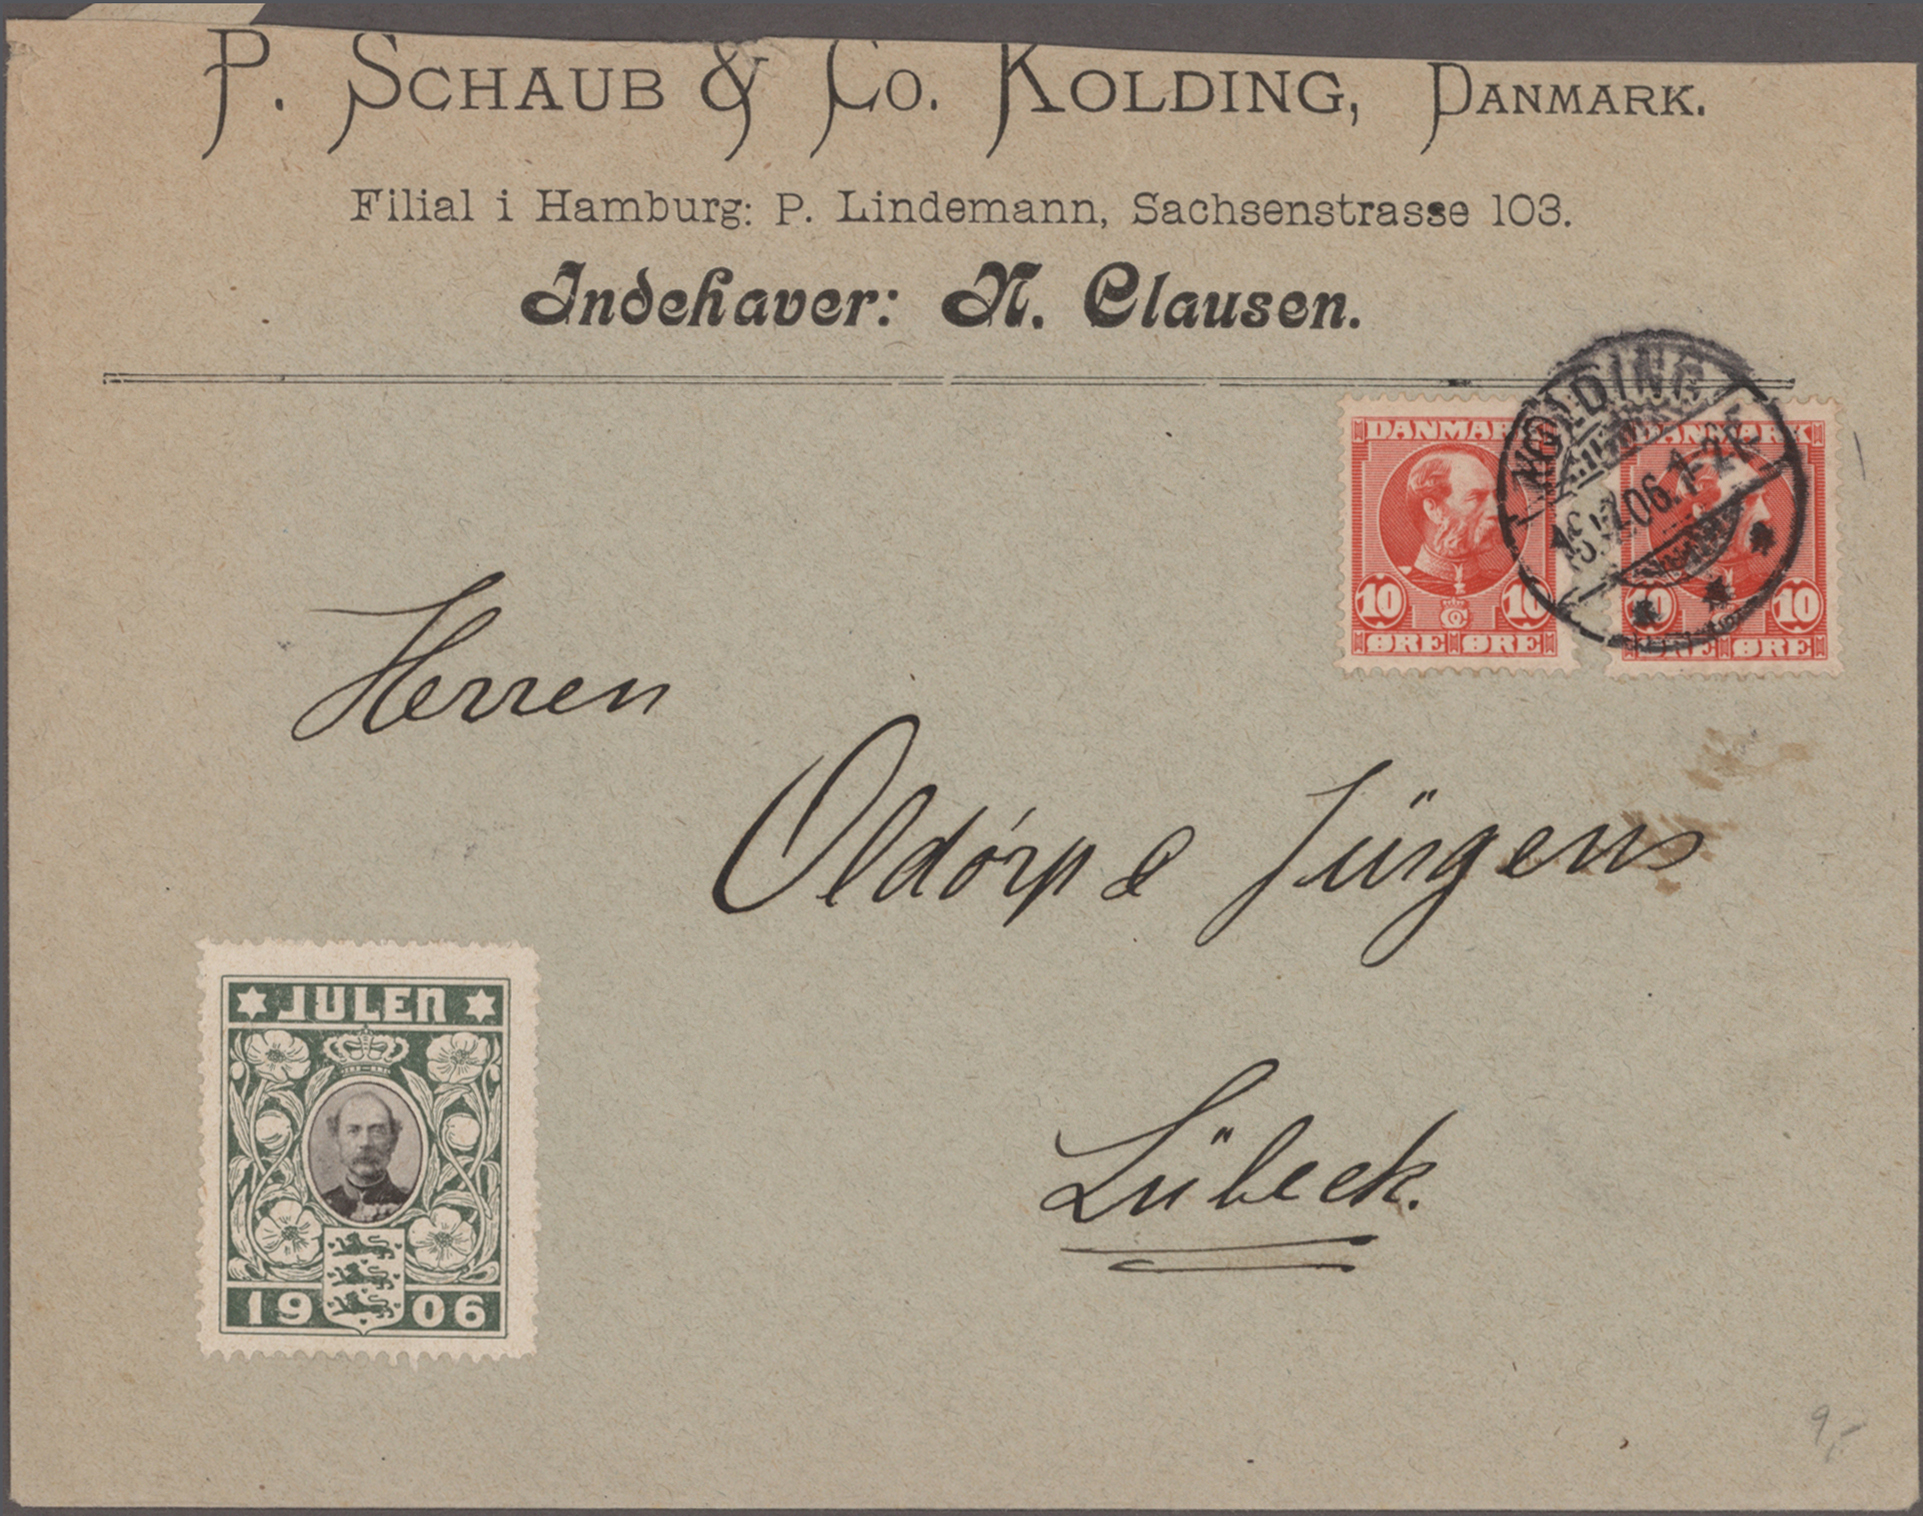 P. SCHAUB & CO. KOLDING, DANMARK.
Filial i Hamburg: P. Lindemann, Sachsenstrasse 103.
Indehaver: N. Clausen.
KOLDING
06. 1-2 E
DANMARK
10 10
ØRE ØRE
DANMARK
10 10
ØRE ØRE
Herren
Oldörp & Jürgens
Lübeck.
JULEN
1906
9,-